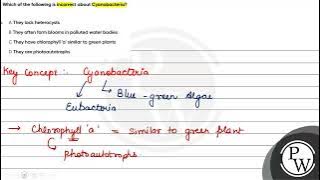 Which of the following is incorrect about Cyanobacteria?
A They lack heterocysts
B They often form blooms in polluted water bodies
C They have chlorophyll 'a' similar to green plants
D They are photoautotrophs
Key Concept :- Cyanobacteria
Blue-green algae
Eubacteria
→ Chlorophyll 'a' = similar to green plant
photoautotrophs
PW